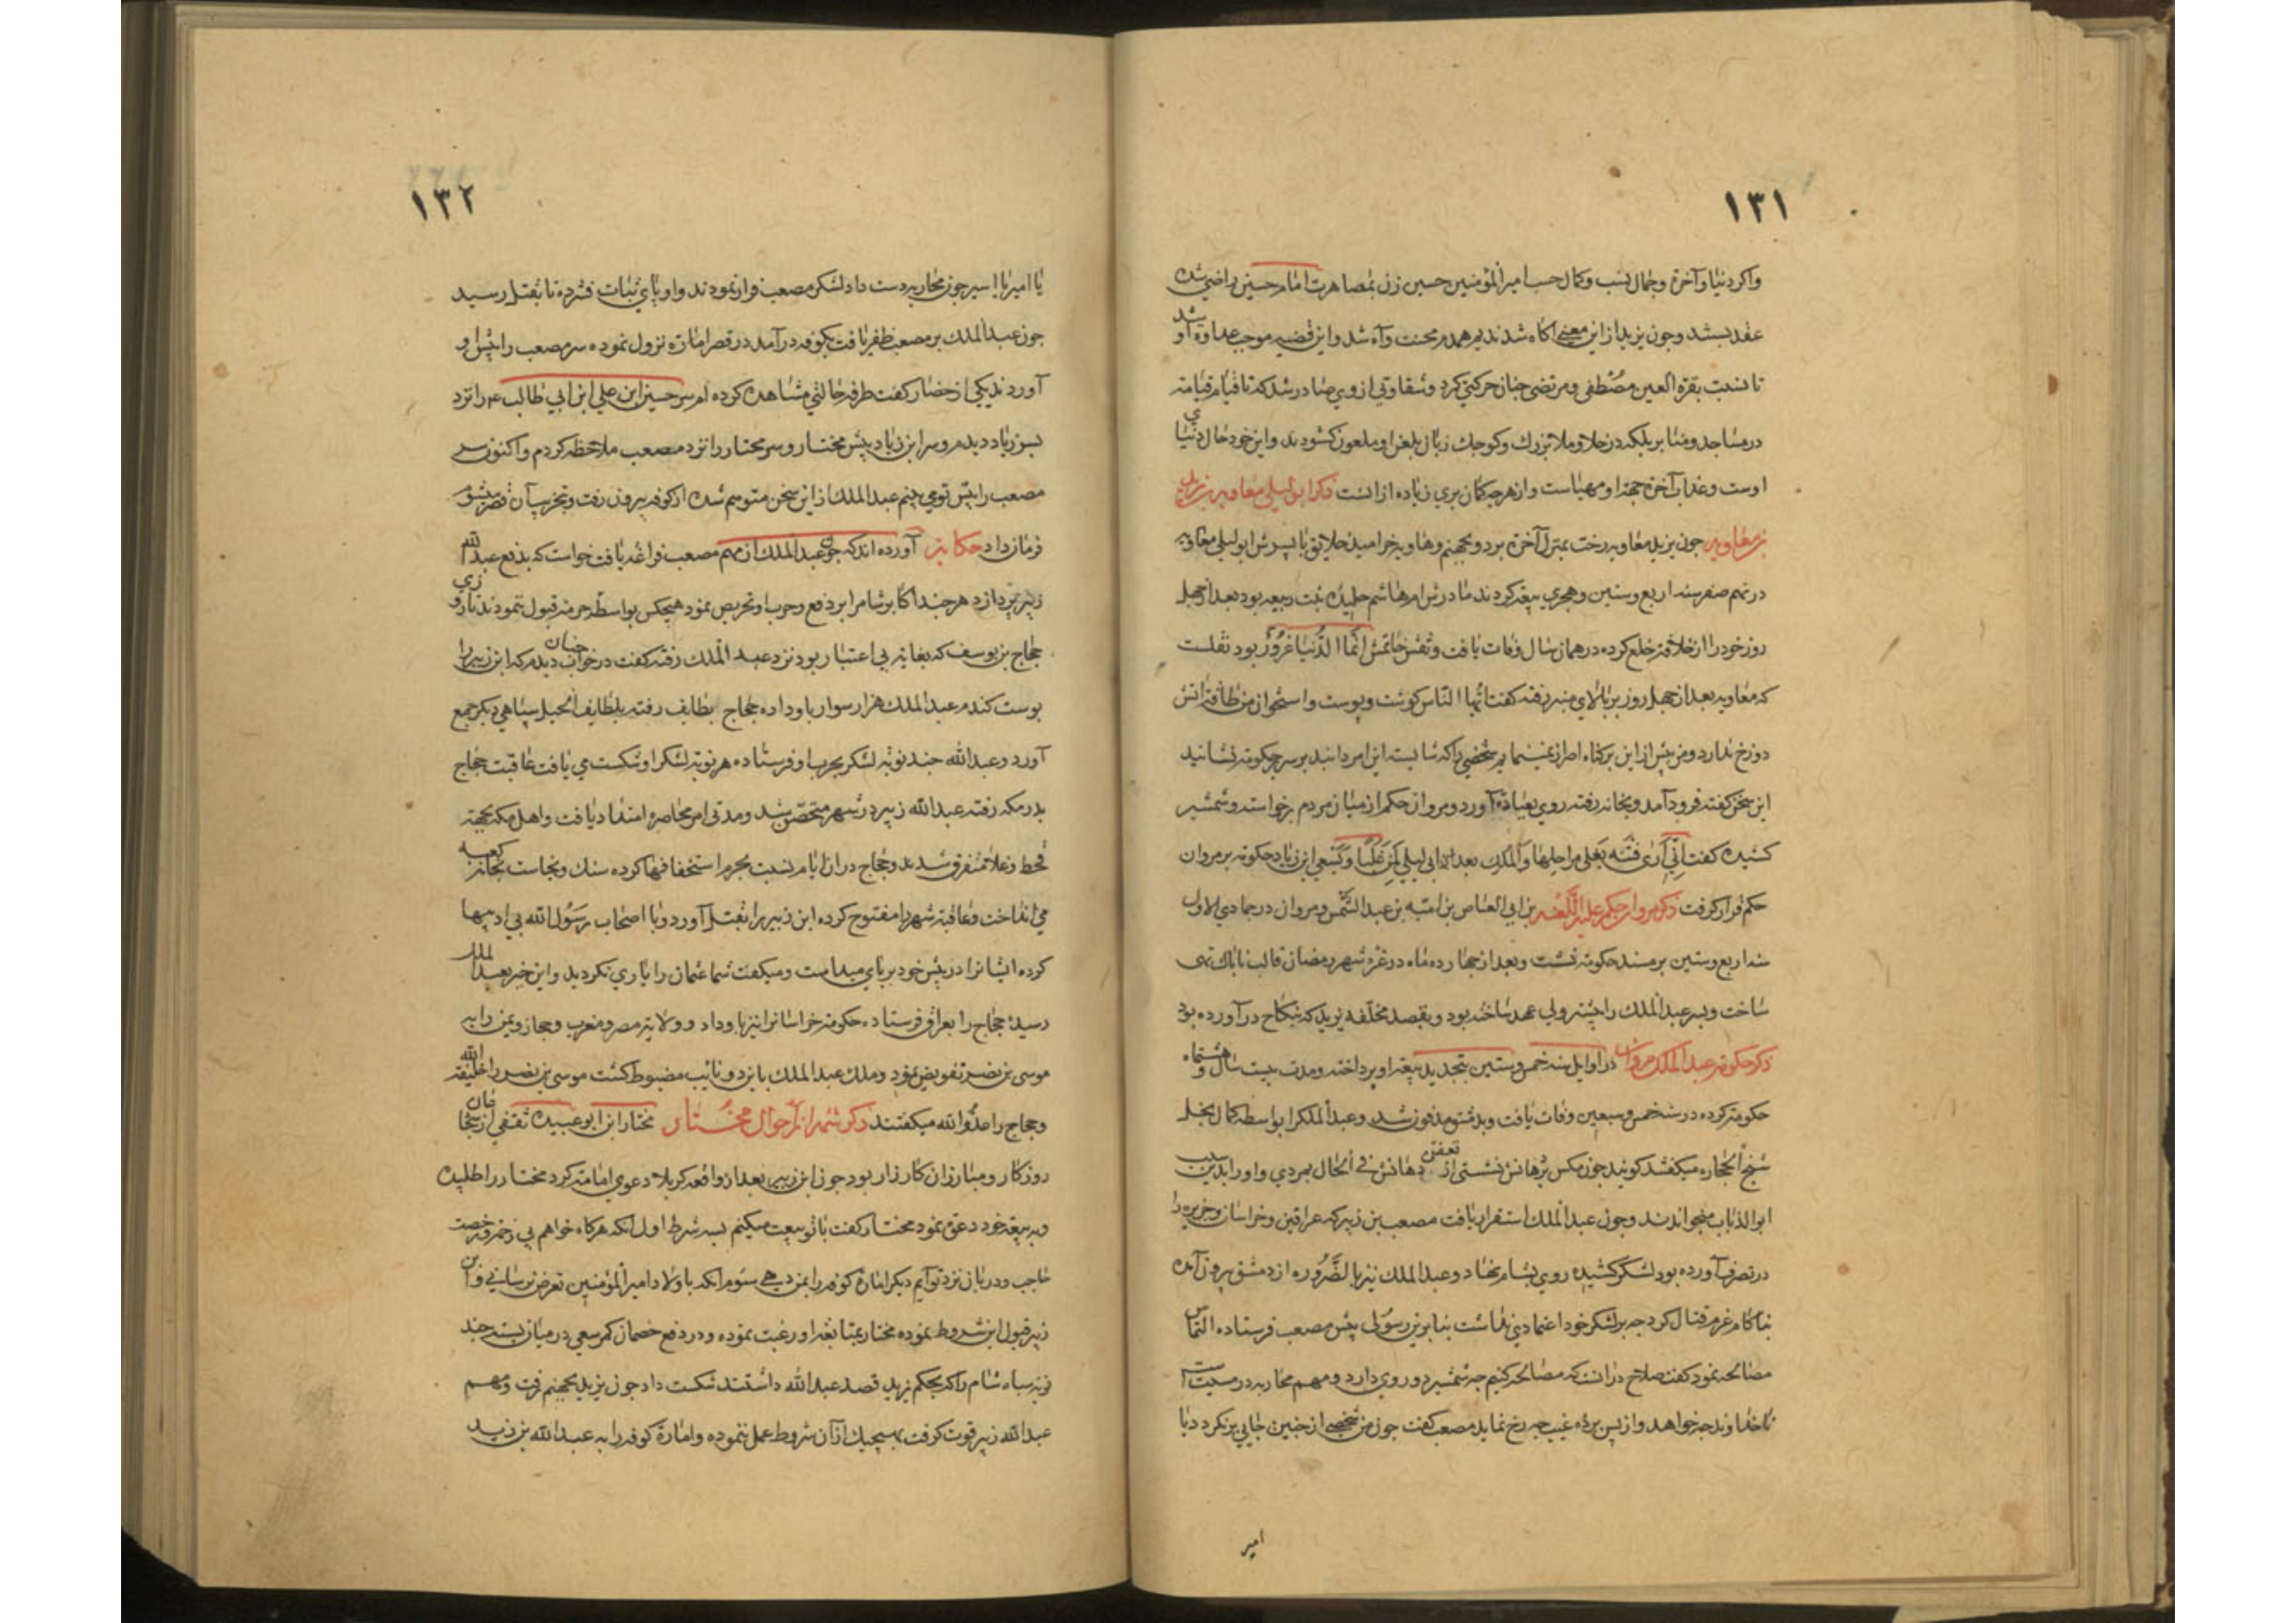 ۱۳۱
واکر دنیا و آخرة و جمال نسب و کمال حسب امیر المؤمنین حسین زن بمصاهرت امام حسین راضی شده
عقد بستند و چون یزید از این معنی آکاه شد ندیم همدم محنت و آه شد و این قضیه موجب عداوة او شد
تا نسبت بقرة العین مصطفی و مرتضی چنان حرکتی کرد و شقاوتی از وی صادر شد که تا قیام قیامة
در مساجد و منابر بلکه در خلا و ملا بزرک و کوچک زبان بلعن او ملعون کشودند و این خود حال دنیای
اوست و عذاب آخرة جهة او مهیاست و از هر چه کمان بری زیاده از انست ذکر ابو لیلی معاویه بن یزید
بن معاویه چون یزید معاویه رخت بمنزل آخرة برد و بجهنم و هاویه خرامید خلایق با پسرش ابو لیلی معاویه
در نهم صفر سنه اربع و ستین هجری بیعة کردند مادرش ام هاشم بنت ربیعه بود بعد از چهل
روز خود را از خلافة خلع کرده در همان سال وفات یافت و نقش خاتمش انّما الدّنیا غرور بود نقلست
که معاویه بعد از چهل روز بر بالای منبر رفته کفت ایّها النّاس کوشت و پوست و استخوان من طاقة آتش
دوزخ ندارد و من پس از این بر کناه اصرار نمینمایم شخصی را که شایسته این امر دانید بر سریر حکومة نشانید
این سخن کفته فرود آمد و بخانه رفته روی بعبادة آورد و مروان حکم از میان مردم برخواسته و شمشیر
کشیده کفت انّی اری فتنه تغلی مراجلها و الملک بعد ابی لیلی لمن غلبا و بسعی ابن زیاد حکومة بر مروان
حکم قرار کرفت ذکر مروان حکم علیه اللّعنه بن ابی العاص بن امیّه بن عبد الشّمس و مروان در جمادی الاول
سنه اربع و ستین بر مسند حکومة نشست و بعد از چهار ده ماه در غرّه شهر رمضان قالب ناپاک تهی
ساخت و پسر عبد الملک را پیشتر ولی عهد ساخته بود و بقصد مخلّفه یزید که بنکاح در آورده بود
ذکر حکومة عبد الملک مروان در اوایل سنه خمس و ستین بتجدید بیعة او پرداخته و مدت بیست سال و هشتماه
حکومة کرده در سنه خمس و سبعین وفات یافت و بدمشق مدفون شد و عبد الملک را بواسطه کمال بخل
شیخ الحجاره میکفتند کویند چون مکس بر دهانش نشستی از تعفن دهانش فی الحال بمردی و او را بدین سبب
ابو الذّباب میخواندند و چون عبد الملک استقرار یافت مصعب بن زبیر که عراقین و خراسان و جزیره را
در تصرف آورده بود لشکر کشیده روی بشام نهاد و عبد الملک نیز بالضّروره از دمشق بیرون آمده
بناکام عزم قتال کرد چه بر لشکر خود اعتمادی نداشت بنابرین رسولی پیش مصعب فرستاده التماس
مصالحه نمود کفت صلاح در انست که مصالحه کنیم چه شمشیر دو روی دارد و مهم محاربه در
تا خداوند چه خواهد و از پس پرده غیب چه رخ نماید مصعب کفت چون من شخصی از چنین جایی برنکردد یا
امیر
۱۳۲
یا امیر یا اسیر چون محاربه دست داد لشکر مصعب فرار نمودند و او پای ثبات فشرده تا بقتل رسید
چون عبد الملک بر مصعب ظفر یافت بکوفه در آمد در قصر امارة نزول نموده سر مصعب را پیش او
آوردند یکی از حضار کفت طرفه حالتی مشاهده کرده ام سر حسین ابن علی ابن ابی طالب ع را نزد
پسر زیاد دیدم و سر ابن زیاد پیش مختار و سر مختار را نزد مصعب ملاحظه کردم و اکنون سر
مصعب را پیش تو می بینم عبد الملک از این سخن متوهم شده از کوفه بیرون رفت و بتخریب آن قصر
فرمان داد حکایة آورده اند که چون عبد الملک از مهم مصعب فراغة یافت خواست که بدفع عبد اللّه
زبیر پردازد هر چند اکابر شام را بر دفع و حرب او تحریص نمود هیچکس بواسطه حرمة قبول ننمودند تا روزی
حجاج بن یوسف که بغایة بی اعتبار بود نزد عبد الملک رفته کفت در خواب چنان دیدم که ابن زبیر را
پوست کندم عبد الملک هزار سوار باو داده حجاج بطایف رفته بلطایف الحیل سپاهی دیکر جمع
آورد و عبد اللّه چند نوبة لشکر بحرب او فرستاده هر نوبة لشکر او شکست می یافت عاقبت حجاج
بدر مکه رفته عبد اللّه زبیر در شهر متحصّن شد و مدتی امر محاصره امتداد یافت و اهل مکه بجهة
قحط و غلا متفرق شدند و حجاج در ان ایام نسبت بحرم استخفافها کرده سنک و نجاست بخانه کعبه
می انداخت و عاقبة شهر را مفتوح کرده ابن زبیر را بقتل آورد و با اصحاب رسول اللّه بی ادبیها
کرده ایشانرا در پیش خود بر پای میداشت و میکفت شما عثمان را یاری نکردید و این خبر بعبد الملک
رسیده حجاج را بعراق فرستاده حکومة خراسانرا نیز باو داد و ولایة مصر و مغرب و حجاز و یمن را به
موسی بن نصیر تفویض نمود و ملک عبد الملک باین دو نایب مضبوط کشت موسی بن نصیر را خلیفة اللّه
و حجاج را عدوّ اللّه میکفتند ذکر شمه از احوال مختار مختار ابن ابو عبیده ثقفی از شجاعان
روزکار و مبارزان کارزار بود چون ابن زبیر بعد از واقعه کربلا دعوی امامة کرد مختار را طلبیده
و به بیعة خود دعوة نمود مختار کفت با تو بیعت میکنم بسه شرط اول انکه هرکاه خواهم بی رخصت
حاجب و دربان نزد تو آیم دیکر امارة کوفه را بمن دهی سوم انکه باولاد امیر المؤمنین تعرض نرسانی و ابن
زبیر قبول این شروط نموده مختار بمتابعة او رغبت نموده و در دفع خصمان کمر سعی در میان بسته چند
نوبة سپاه شام را که بحکم یزید قصد عبد اللّه داشتند شکست داد چون یزید بجهنم رفت و مهم
عبد اللّه زبیر قوت کرفت بهیچیک از آن شروط عمل ننموده و امارة کوفه را به عبد اللّه بن